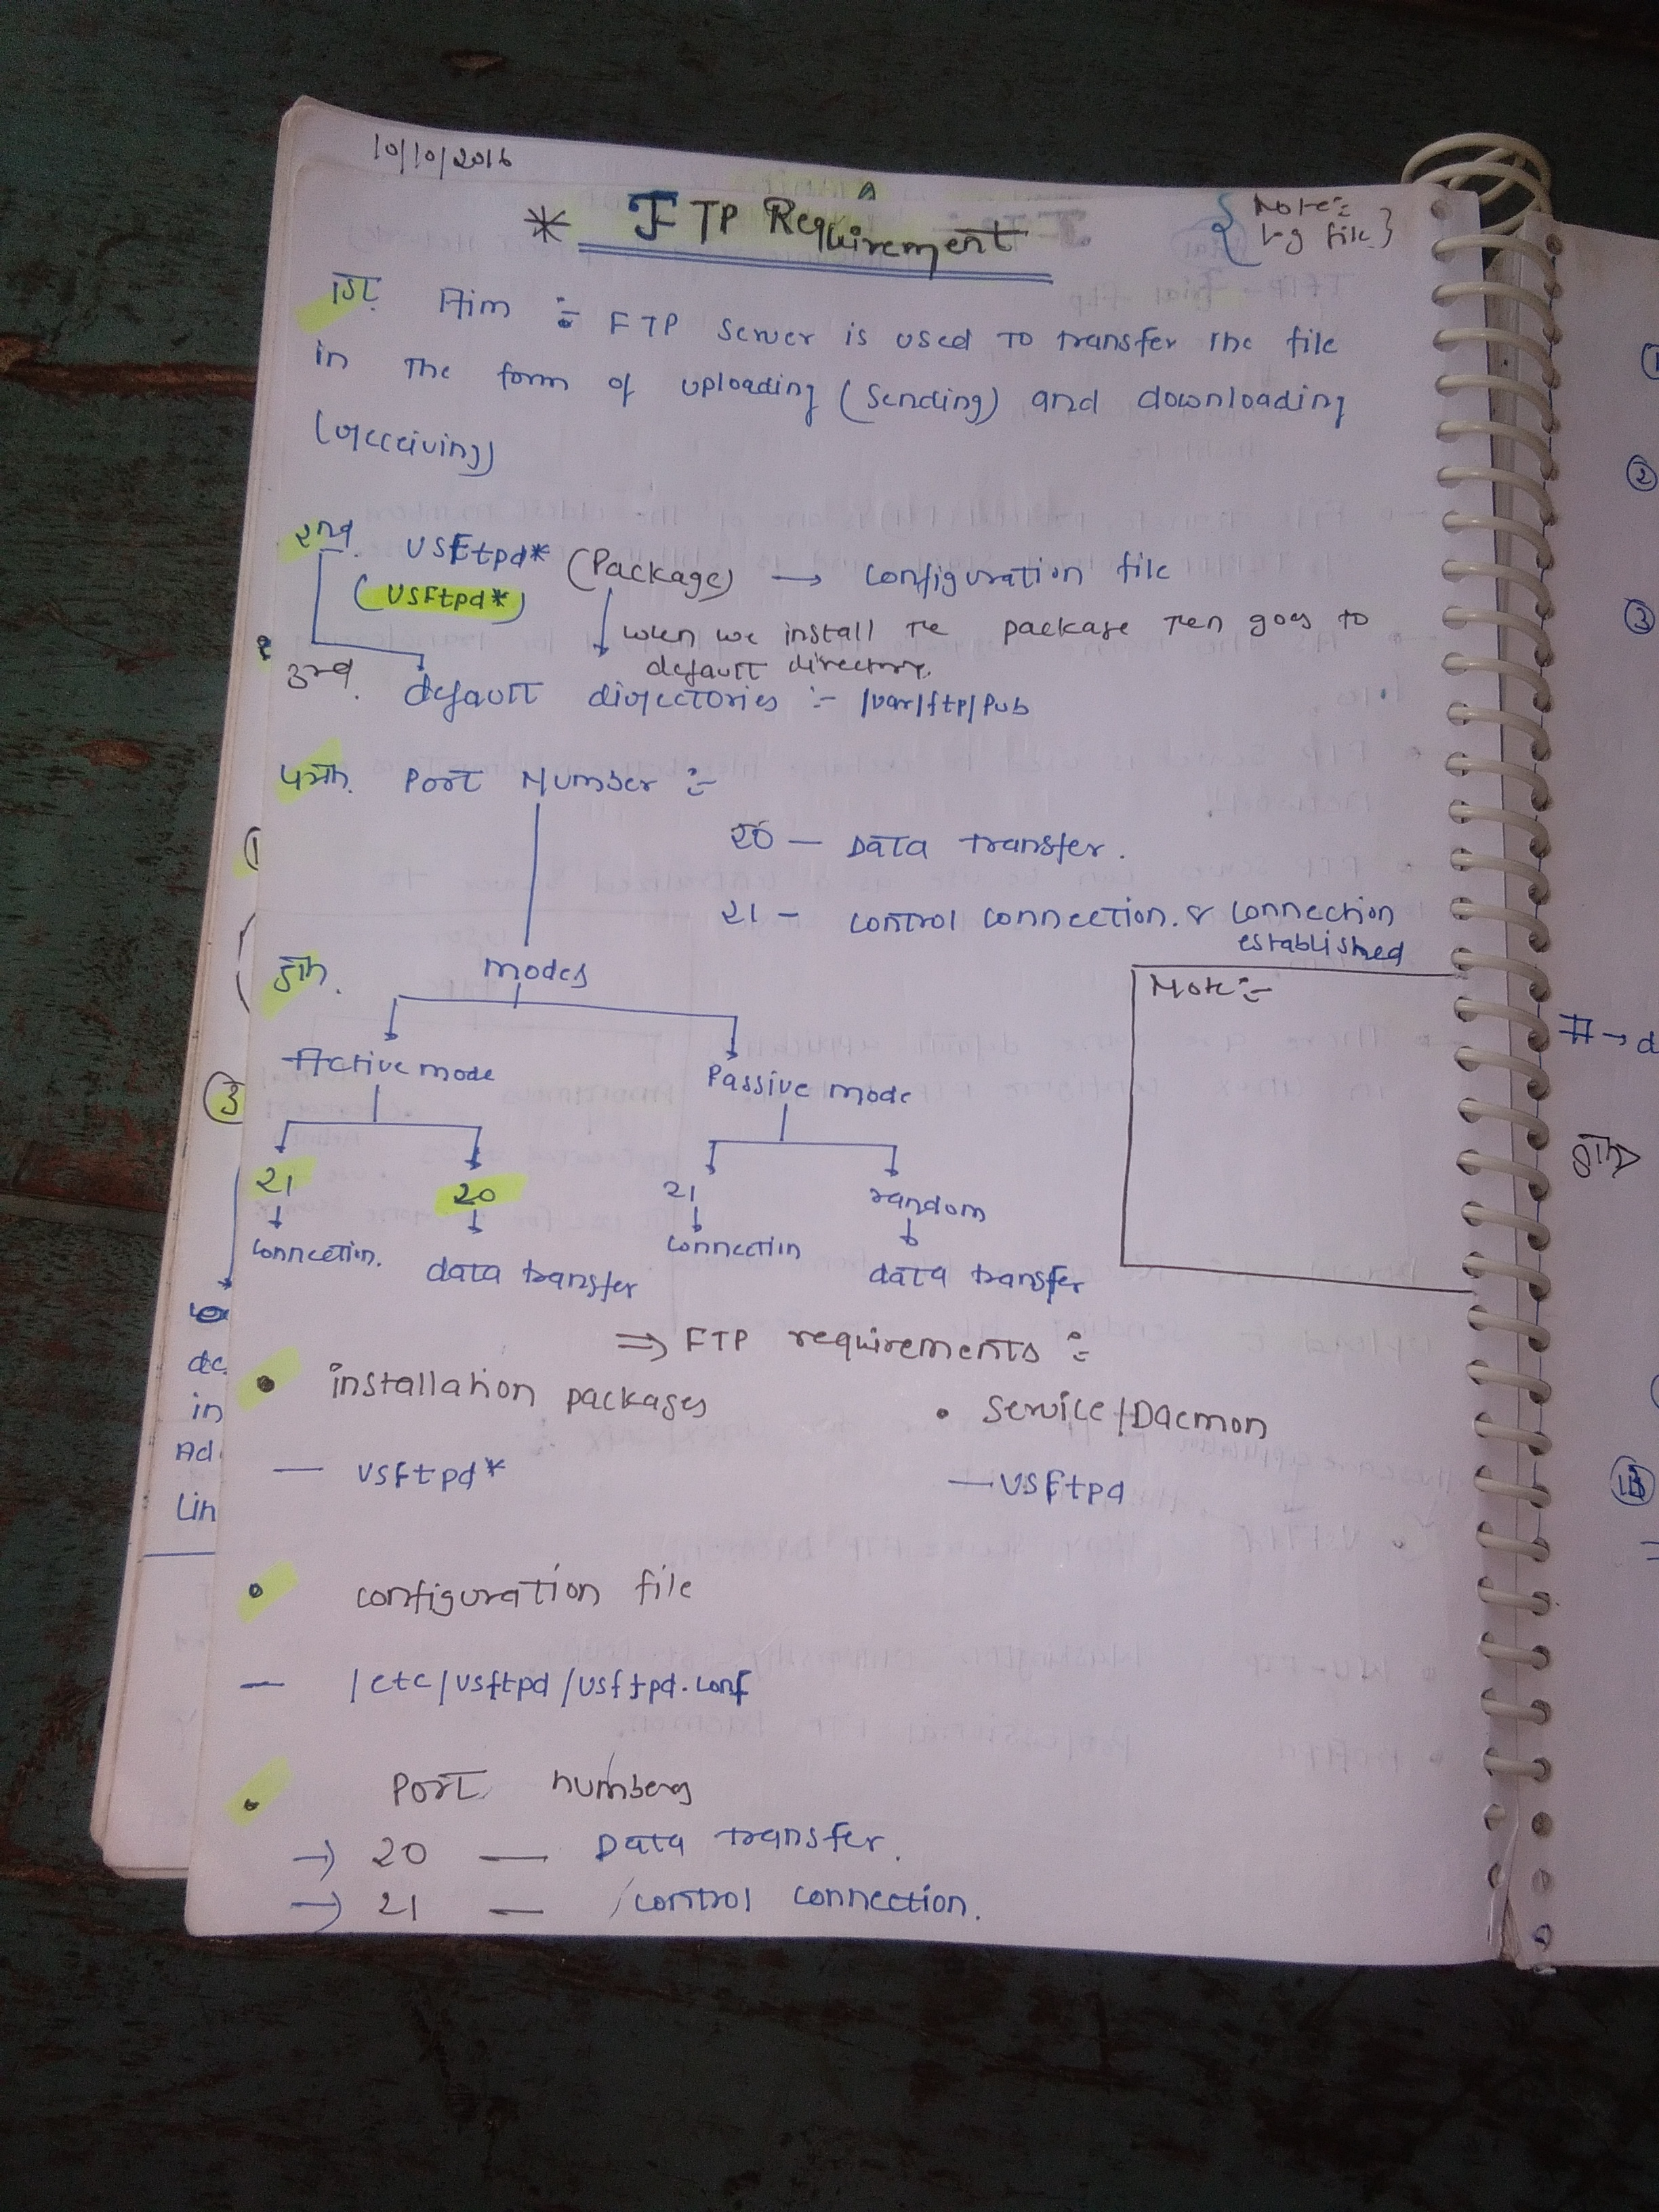 10/10/2016
* FTP Requirement
{ Note:-
Lg file }
1st. Aim :- FTP server is used to transfer the file
in the form of uploading (sending) and downloading
(receiving)
2nd. vsftpd* (Package) → configuration file
(vsftpd*)
when we install the package then goes to
default directory.
3rd. default directories :- /var/ftp/pub
4th. Port Number :-
20 — Data transfer.
21 - control connection. & connection
established
5th. modes
Note:-
Active mode
Passive mode
21
20
21
random
connection.
data transfer
connection
data transfer
⇒ FTP requirements :-
• installation packages
• Service/Daemon
— vsftpd*
— vsftpd
• configuration file
— /etc/vsftpd/vsftpd.conf
• Port numbers
→ 20 — Data transfer.
→ 21 — control connection.
1
3
in
Ad
Lin
2
3
# → d
8th